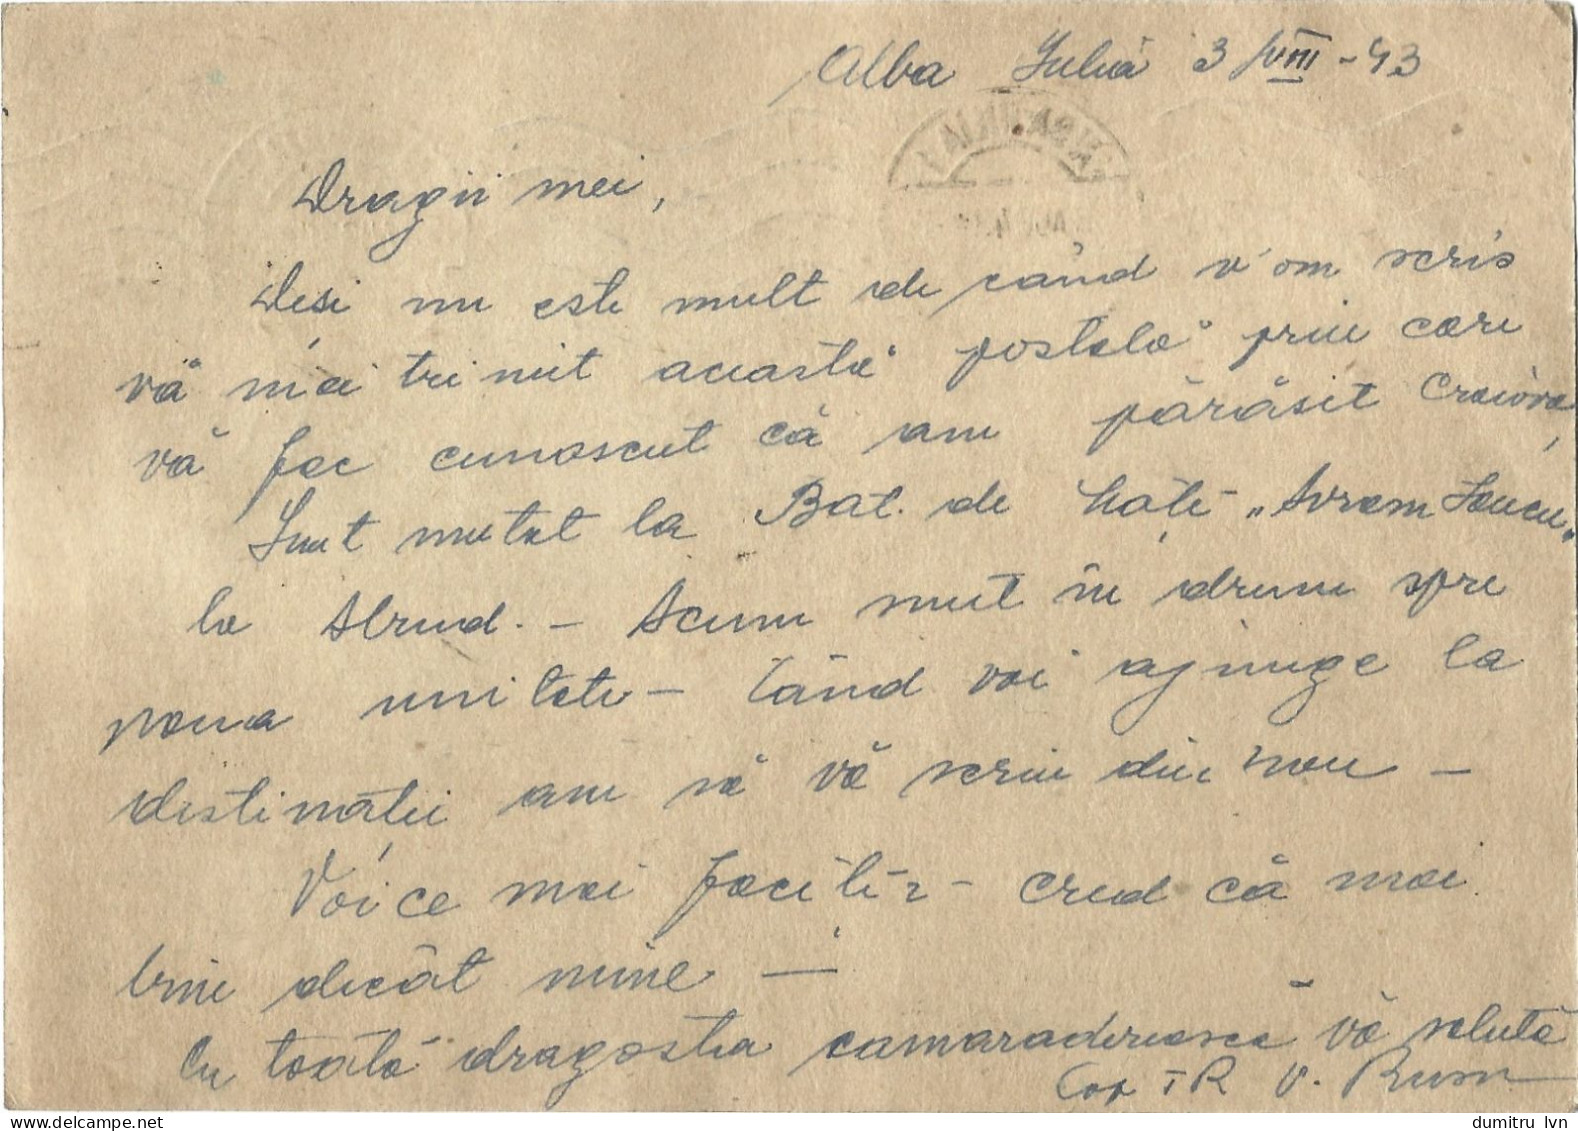 Alba Iulia 3/VIII-43
Dragii mei,
Deși nu este mult de când v'am scris
vă mai trimit această postală prin care
vă fac cunoscut că am părăsit Craiova,
Sunt mutat la Bat. de Moți „Avram Iancu"
la Abrud. — Acum sunt în drum spre
noua unitate — Când voi ajunge la
destinații am să vă scriu din nou —
Voi ce mai faceți — cred că mai
bine decât mine —
Cu toată dragostea camaraderească vă salută
TR V.
dumitru lvn